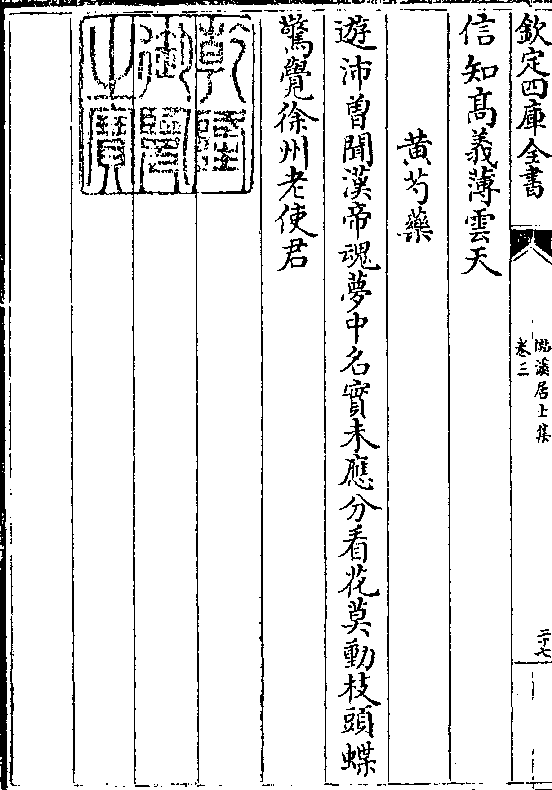 欽定四庫全書
㴑溪居士集
卷三
二十七
信知髙義薄雲天
黄芍藥
遊沛曽聞漢帝魂夢中名實未應分看花莫動枝頭蝶
驚覺徐州老使君
乾隆御覽之寳